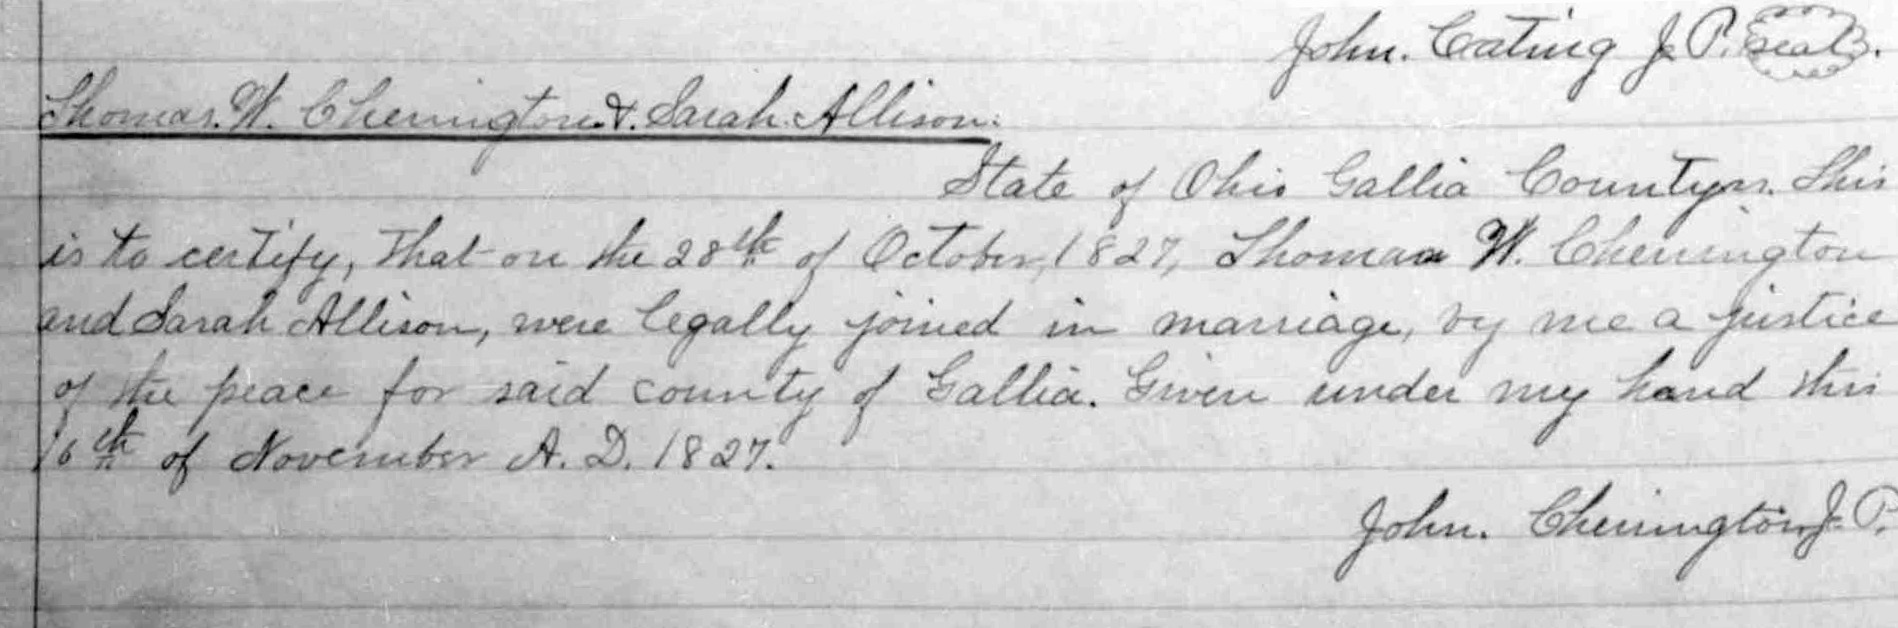 John. Eating J. P. Seal.
Thomas. W. Cherrington. &. Sarah. Allison.
State of Ohio Gallia County ss. This
is to certify, that on the 28th of October, 1827, Thomas W. Cherrington
and Sarah Allison, were legally joined in marriage, by me a justice
of the peace for said county of Gallia. Given under my hand this
16th of November A. D. 1827.
John. Cherrington J. P.